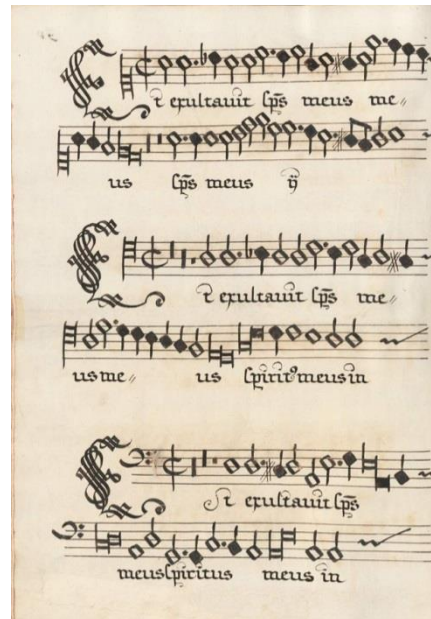 Et exultavit sp̄s meus me〃
us sp̄s meus ij
Et exultavit sp̄s me〃
us me〃 us spiritꝰ meus in
Et exultavit sp̄s
meus spiritus meus in